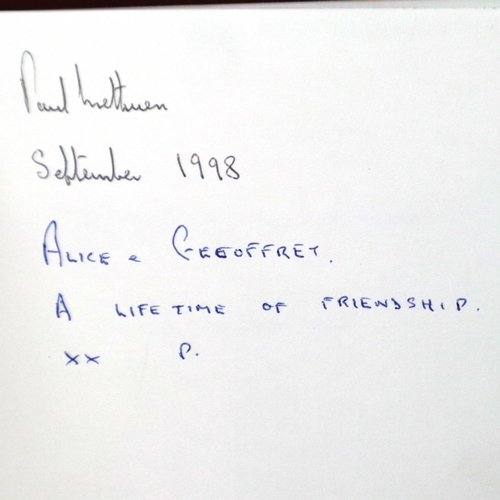 Paul Methuen
September 1998
ALICE & GEEOFFREY.
A LIFETIME OF FRIENDSHIP.
xx P.